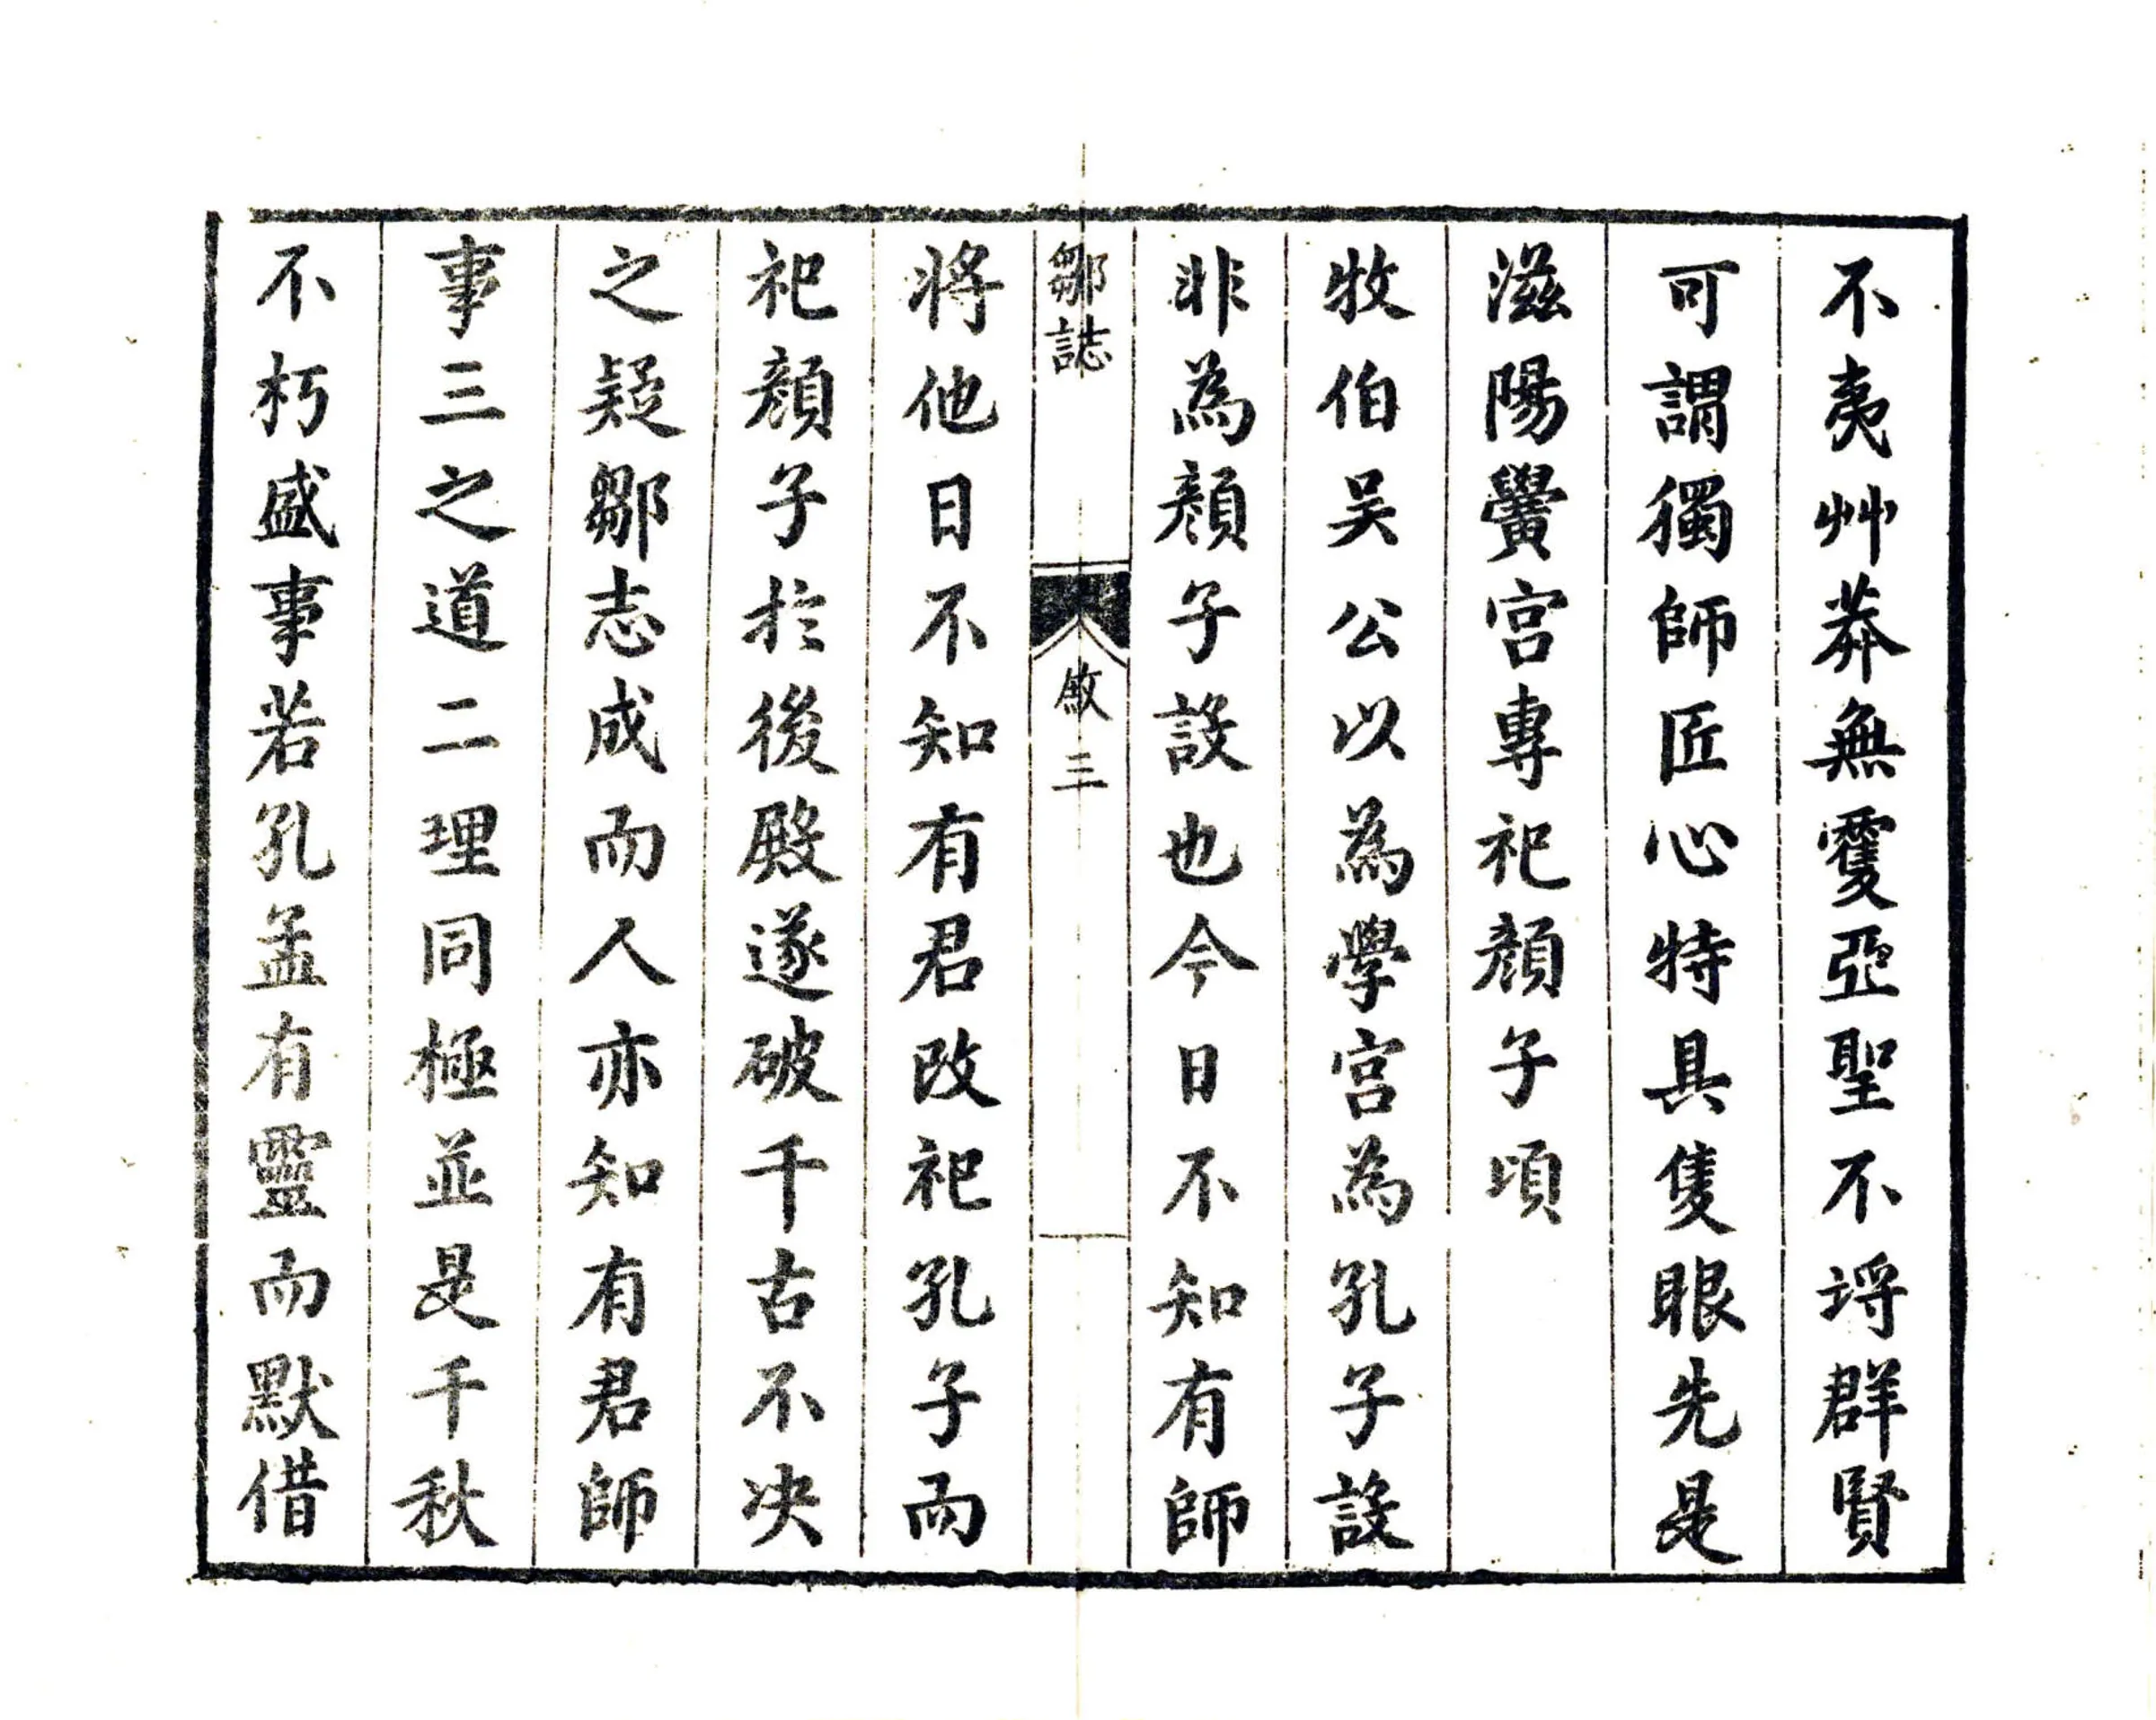 不夷艸莽無䨥亞聖不埒群賢
可謂獨師匠心特具隻眼先是
滋陽黌宮專祀顏子頃
牧伯吴公以為學宮為孔子設
非為顏子設也今日不知有師
鄒誌
敘三
將他日不知有君改祀孔子而
祀顏子於後殿遂破千古不决
之疑鄒志成而人亦知有君師
事三之道二理同極並是千秋
不朽盛事若孔孟有靈而默借